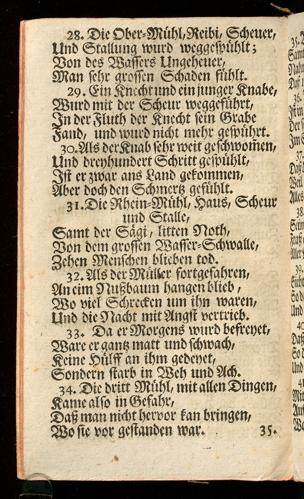 28. Die Ober-Mühl, Reibi, Scheuer,
Und Stallung wurd weggespühlt;
Von des Wassers Ungeheuer,
Man sehr grossen Schaden fühlt.
29. Ein Knecht und ein junger Knabe,
Wurd mit der Scheur weggeführt,
In der Fluth der Knecht sein Grabe
Fand, und wurd nicht mehr gespührt.
30. Als der Knab sehr weit geschwom̃en,
Und dreyhundert Schritt gespühlt,
Ist er zwar ans Land gekommen,
Aber doch den Schmertz gefühlt.
31. Die Rhein-Mühl, Haus, Scheur
und Stalle,
Samt der Sägi, litten Noth,
Von dem grossen Wasser-Schwalle,
Zehen Menschen blieben tod.
32. Als der Müller fortgefahren,
An eim Nußbaum hangen blieb,
Wo viel Schrecken um ihn waren,
Und die Nacht mit Angst vertrieb.
33. Da er Morgens wurd befreyet,
Ware er gantz matt und schwach,
Keine Hülff an ihm gedeyet,
Sondern starb in Weh und Ach.
34. Die dritt Mühl, mit allen Dingen,
Kame also in Gefahr,
Daß man nicht hervor kan bringen,
Wo sie vor gestanden war. 35.